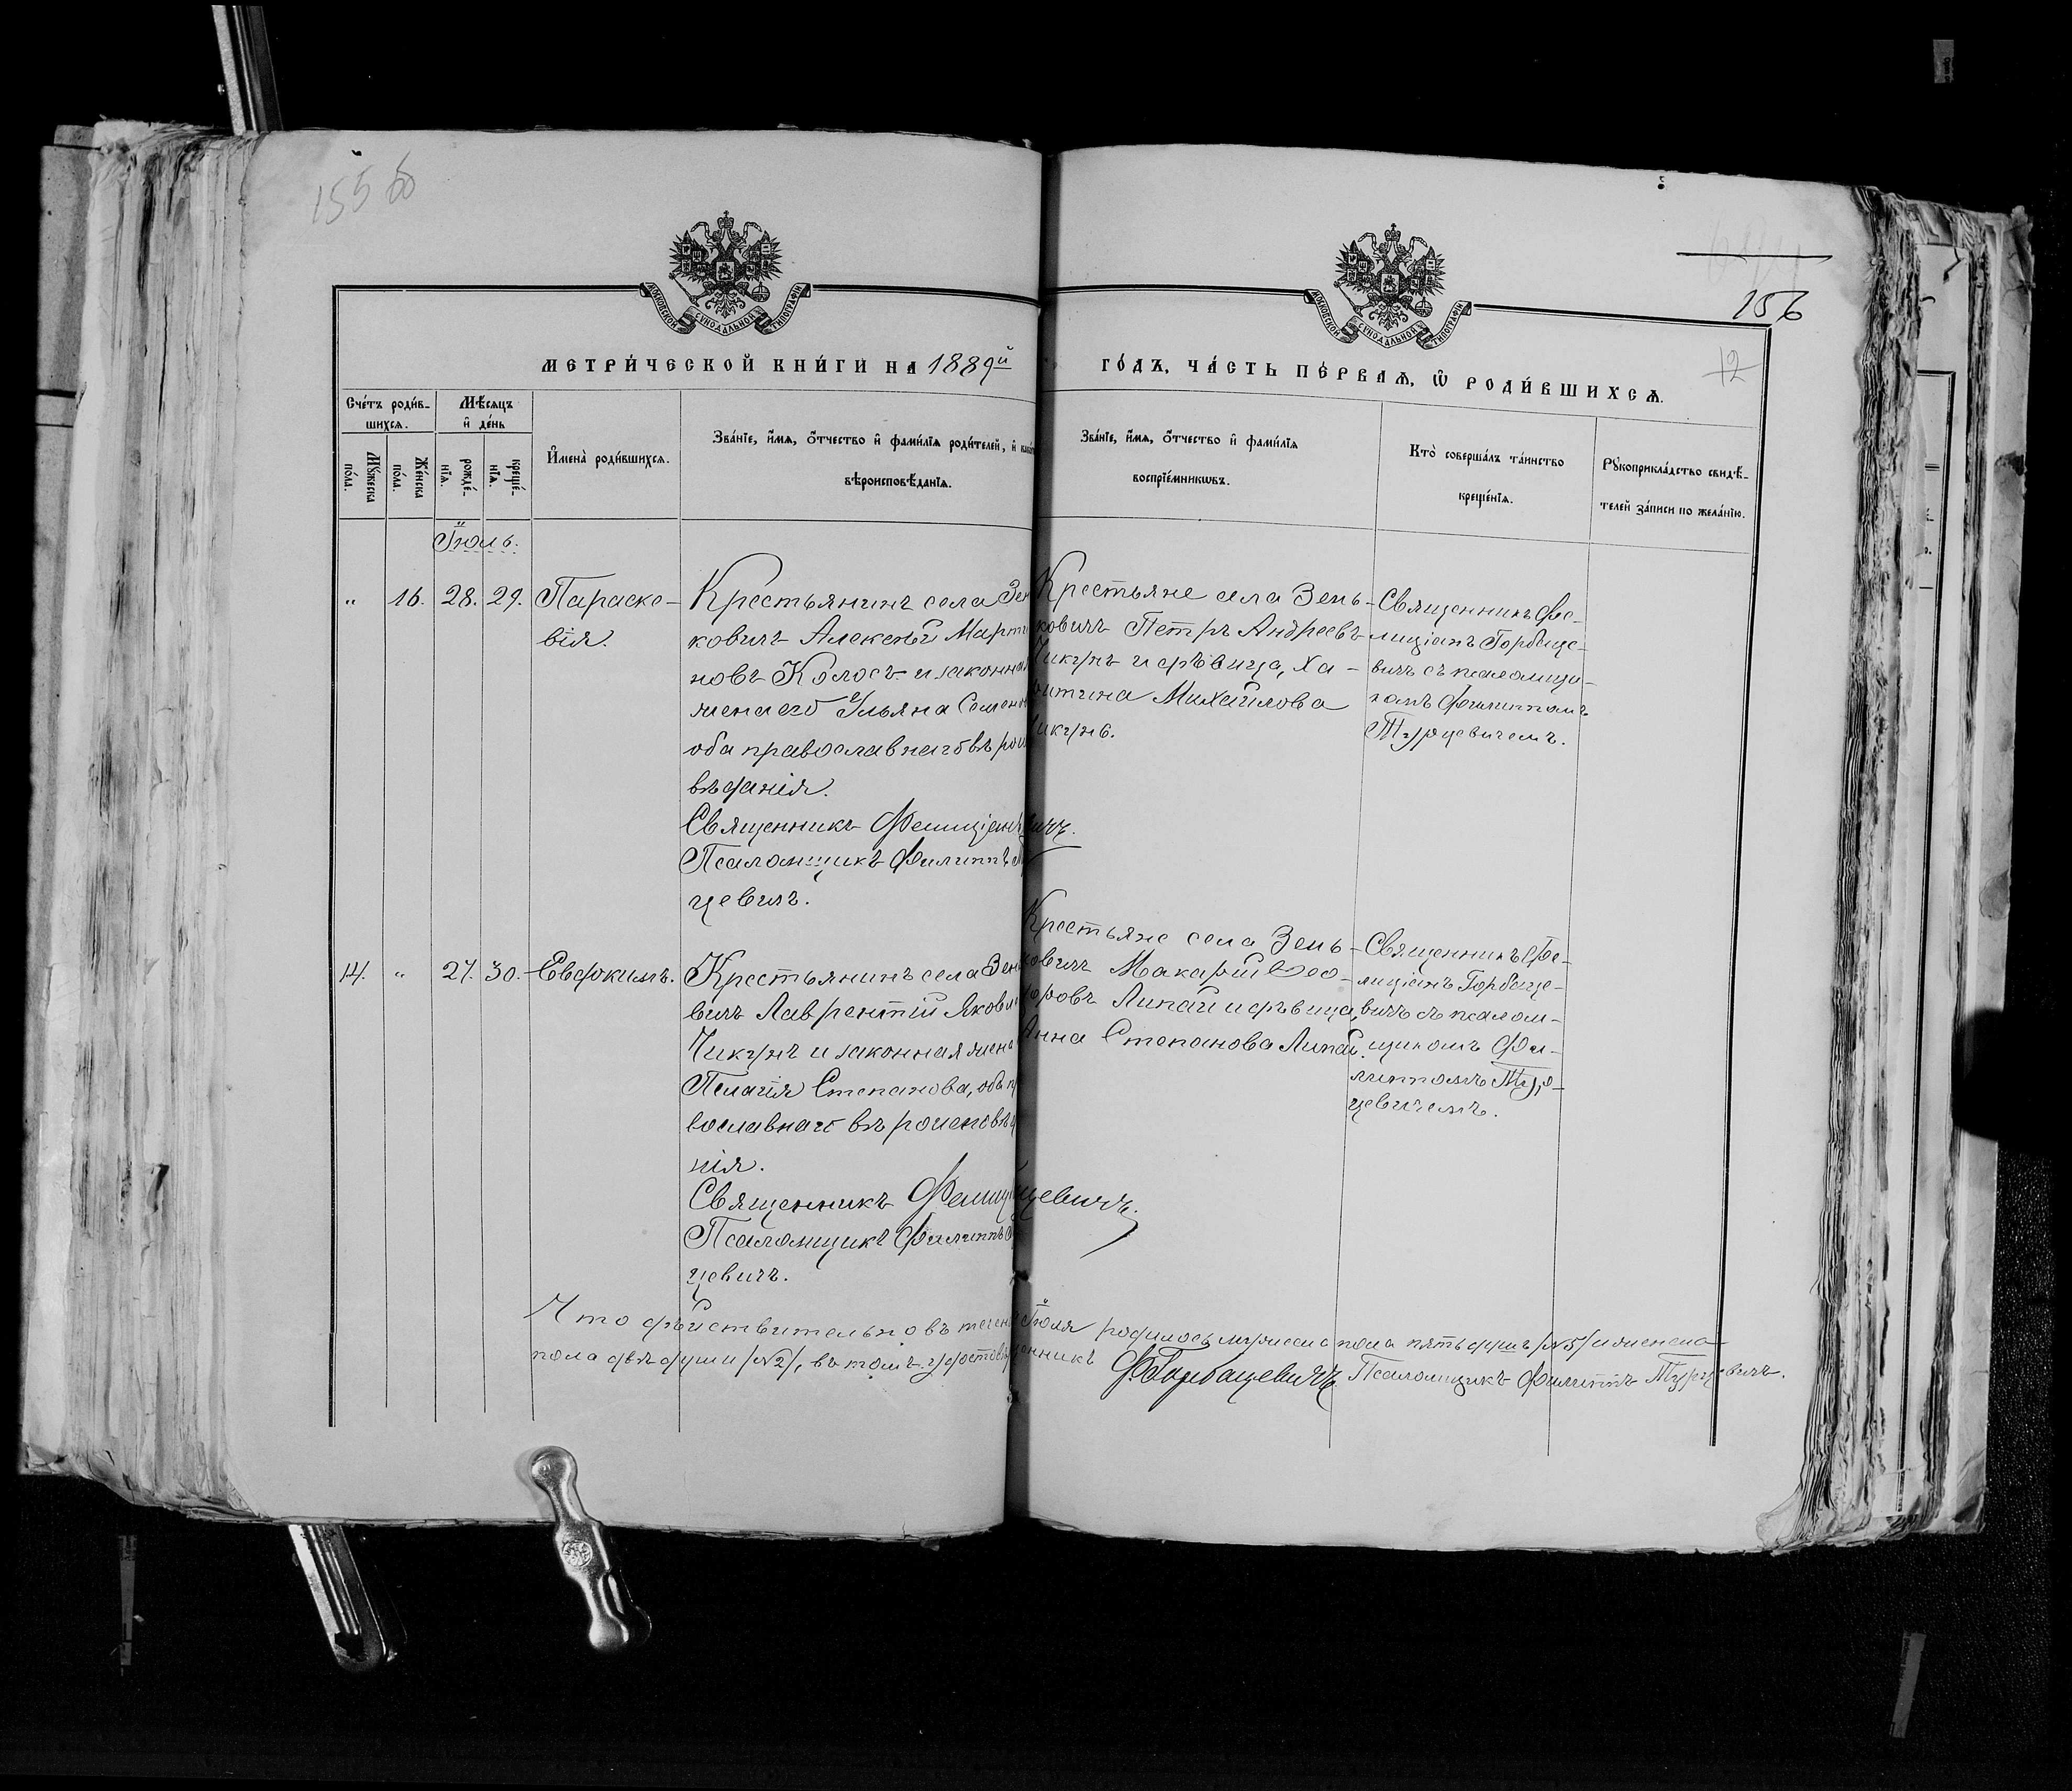 155 об
156
12
МОСКОВСКОЙ СѴНОДАЛЬНОЙ ТИПОГРАФІИ
МОСКОВСКОЙ СѴНОДАЛЬНОЙ ТИПОГРАФІИ
МЕТРИ́ЧЕСКОЙ КНИ́ГИ НА 1889й
ГО́ДЪ, ЧА́СТЬ ПЕ́РВАѦ, Ѡ҆ РОДИ́ВШИХСѦ.
Сче́тъ роди́в-
шихсѧ.
Мѣ́сѧцъ
и҆ де́нь
Мꙋ́жеска
по́ла.
Же́нска
по́ла.
рожде́-
нїѧ.
креще́-
нїѧ.
И҆мена̀ роди́вшихсѧ.
Зва́нїе, и҆́мѧ, ѻ҆́тчество и҆ фами́лїѧ роди́телей, и҆
вѣроисповѣ́данїѧ.
Зва́нїе, и҆́мѧ, ѻ҆́тчество и҆ фами́лїѧ
воспрїе́мникѡвъ.
Кто̀ соверша́лъ та́инство
креще́нїѧ.
Рꙋкоприкла́дство свидѣ́-
телей за́писи по жела́нїю.
Іюль.
" 16. 28. 29. Параске-
вія.
Крестьянинъ села Зен
ковичъ Алексѣй Март
новъ Колосъ и законная
жена его Ульяна Семенов
оба православнаго вѣрои
вѣданія.
Священникъ Фелиціанъ
Псаломщикъ Филиппъ
цевичъ.
Крестьяне села Зень-
ковичъ Петръ Андреевъ
Чикунъ и дѣвица, Ха-
ритина Михайлова
Чикунъ.
вичъ.
Священникъ Фе-
лиціанъ Горбаце-
вичъ съ псаломщи-
комъ Филиппомъ
Турцевичемъ.
14. " 27. 30. Евдокимъ.
Крестьянинъ села Зень
вичъ Лаврентій Яковл
Чикунъ и законная жена
Пелагія Степанова, оба п
вославнаго вѣроисповѣд
нія.
Священникъ Фелиц
Псаломщикъ Филиппъ
цевичъ.
Крестьяне села Зень-
ковичъ Макарій Ѳео-
доровъ Липай и дѣвица,
Анна Степанова Липай.
цевичъ.
Священникъ Фе-
лиціанъ Горбаце-
вичъ съ псалом-
щикомъ Фи-
липпомъ Тур-
цевичемъ.
Что дѣйствительно въ течен Іюля родилось мужеска пола пять душъ /№5/ и женска
пола двѣ души /№2/, въ томъ удостовѣ щенникъ Ф. Горбацевичъ. Псаломщикъ Филиппъ Турцевичъ.